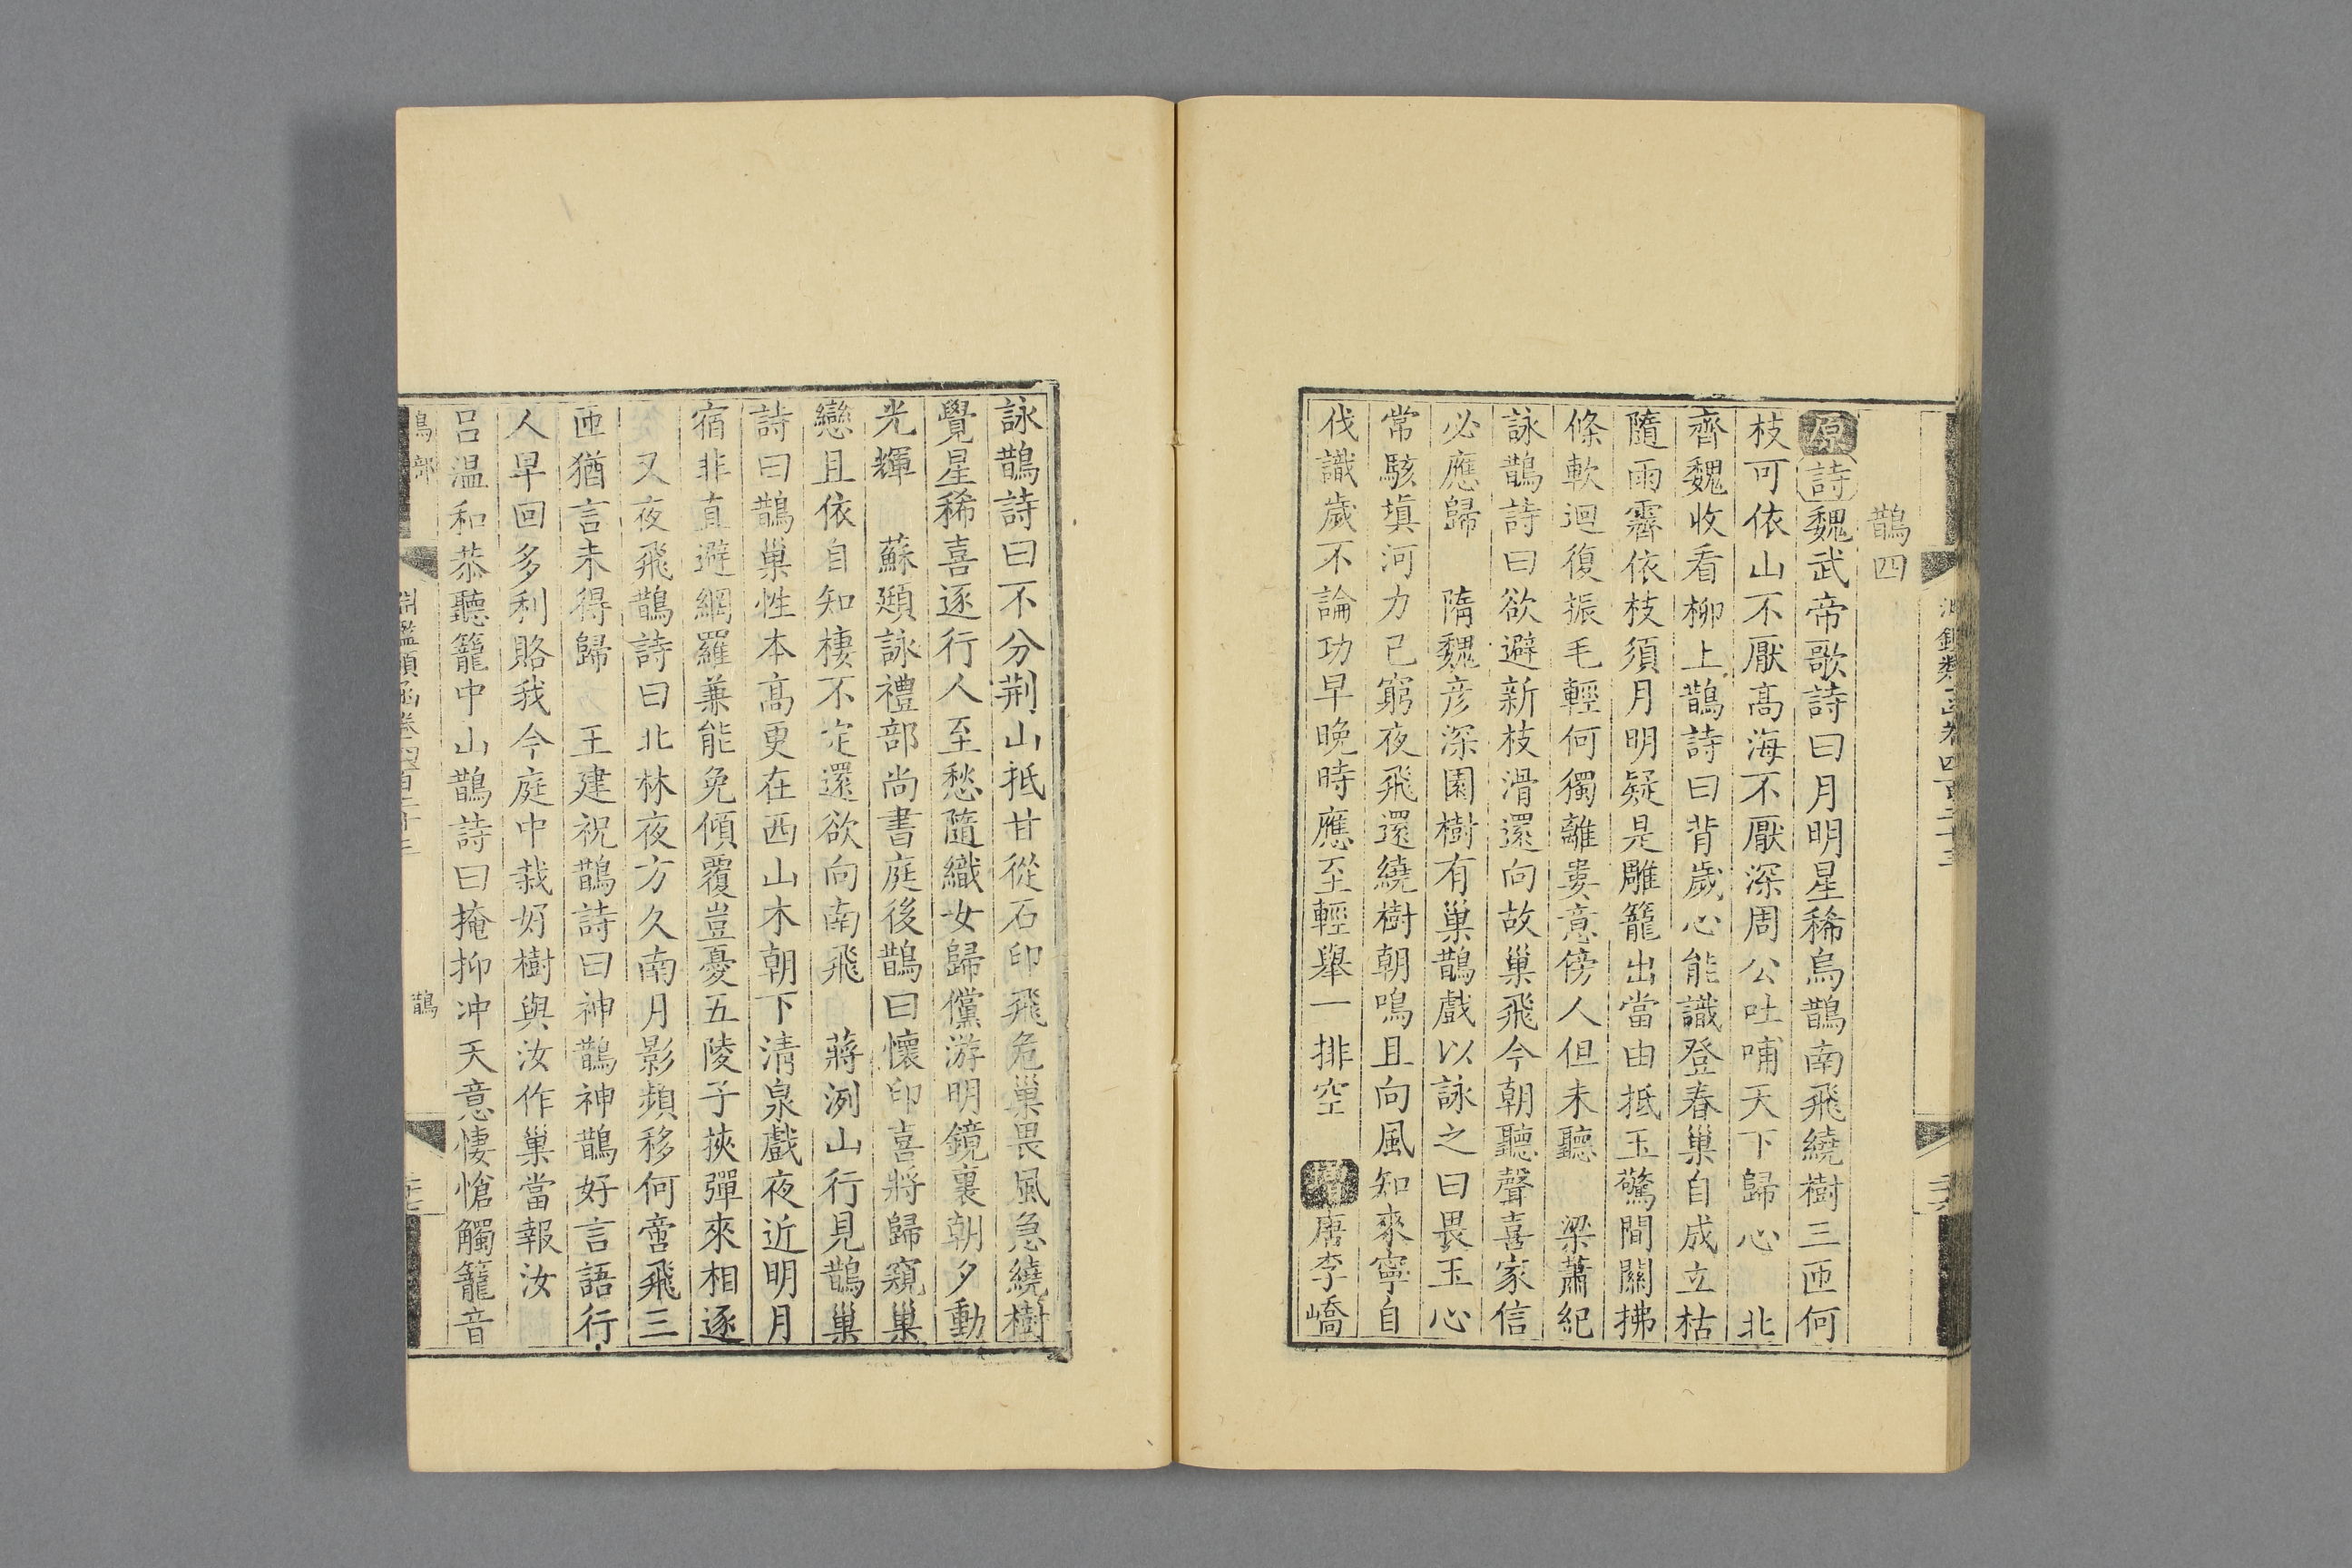 鵲四
原 詩 魏武帝歌詩曰月明星稀烏鵲南飛繞樹三匝何
枝可依山不厭高海不厭深周公吐哺天下歸心 北
齊魏收看柳上鵲詩曰背歲心能識登春巢自成立枯
隨雨霽依枝須月明疑是雕籠出當由抵玉驚間關拂
條軟迴復振毛輕何獨離婁意傍人但未聽 梁蕭紀
詠鵲詩曰欲避新枝滑還向故巢飛今朝聽聲喜家信
必應歸 隋魏彦深園樹有巢鵲戲以詠之曰畏玉心
常駭填河力已窮夜飛還繞樹朝鳴且向風知來寧自
伐識歲不論功早晚時應至輕舉一排空 增 唐李嶠
詠鵲詩曰不分荆山抵甘從石印飛危巢畏風急繞樹
覺星稀喜逐行人至愁隨織女歸儻游明鏡裏朝夕動
光輝 蘇頲詠禮部尚書庭後鵲曰懷印喜將歸窺巢
戀且依自知棲不定還欲向南飛 蔣洌山行見鵲巢
詩曰鵲巢性本高更在西山木朝下清泉戲夜近明月
宿非直避網羅兼能免傾覆豈憂五陵子挾彈來相逐
又夜飛鵲詩曰北林夜方久南月影頻移何啻飛三
匝猶言未得歸 王建祝鵲詩曰神鵲神鵲好言語行
人早回多利賂我今庭中栽好樹與汝作巢當報汝
吕温和恭聽籠中山鵲詩曰掩抑冲天意悽愴觸籠音
鳥部 淵鑑類函卷四百二十三 鵲